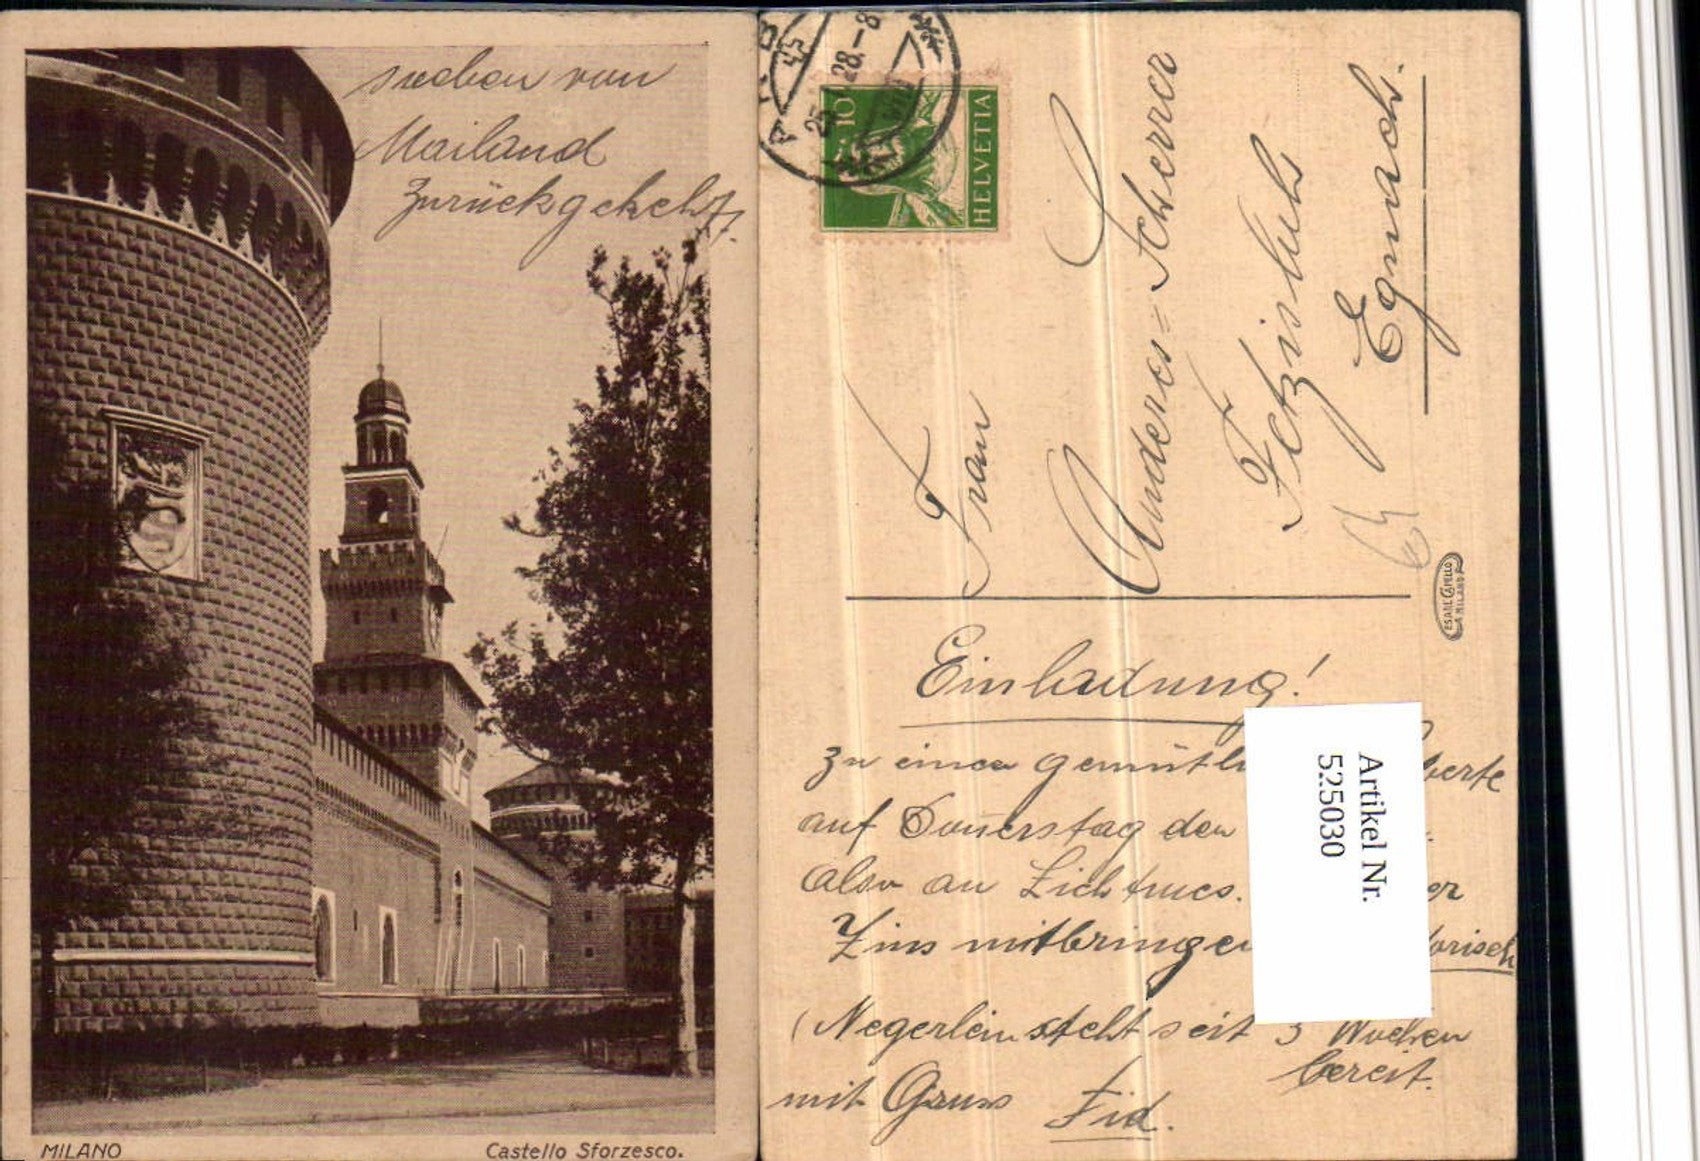 soeben von
Mailand
zurückgekehrt.
MILANO
Castello Sforzesco.
10
HELVETIA
Frau
Anderes=Scherrer
Fetzisloh
Egnach.
Einladung!
zu einer gemütl
auf Donnerstag den
Also an Lichtmes. er
Zins mitbringen torisch
(Negerlein steht seit 3 Wochen
bereit.
mit Gruss Fid.
Artikel Nr.
525030
CESARE CAPELLO
MILANO